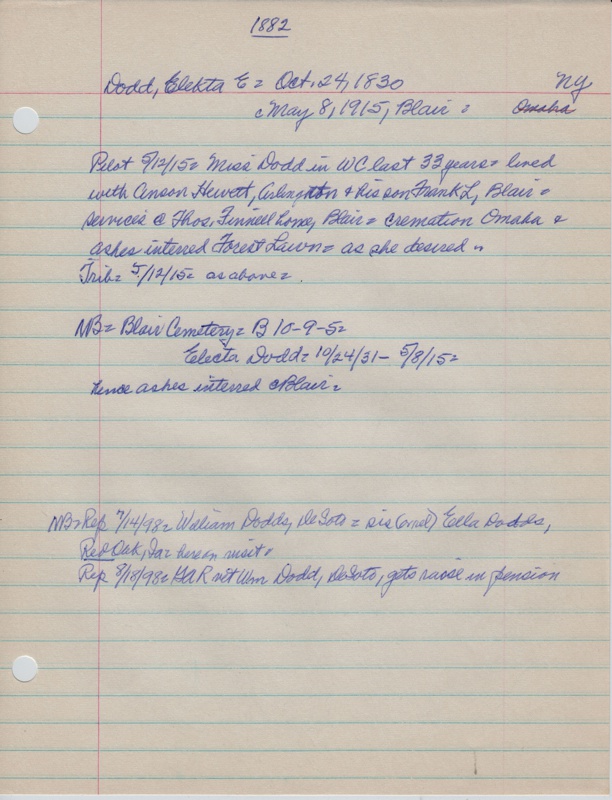 1882
Dodd, Elekta E = Oct. 24, 1830 NY
May 8, 1915, Blair = Omaha
Pilot 5/12/15 = Miss Dodd in WC last 33 years = lived
with Anson Hewett, Arlington & his son Frank L, Blair =
services @ Thos. Finnell home, Blair = cremation Omaha &
ashes interred Forest Lawn = as she desired =
Trib = 5/12/15 = as above =
NB = Blair Cemetery = B 10-9-5 =
Electa Dodd = 10/24/31 - 5/8/15 =
hence ashes interred @ Blair =
NB = Rep 7/14/98 = William Dodds, DeSoto = sis Ella Dodds,
Red Oak, Ia = here on visit =
Rep 8/18/98 = GAR vet Wm Dodd, DeSoto, gets raise in pension